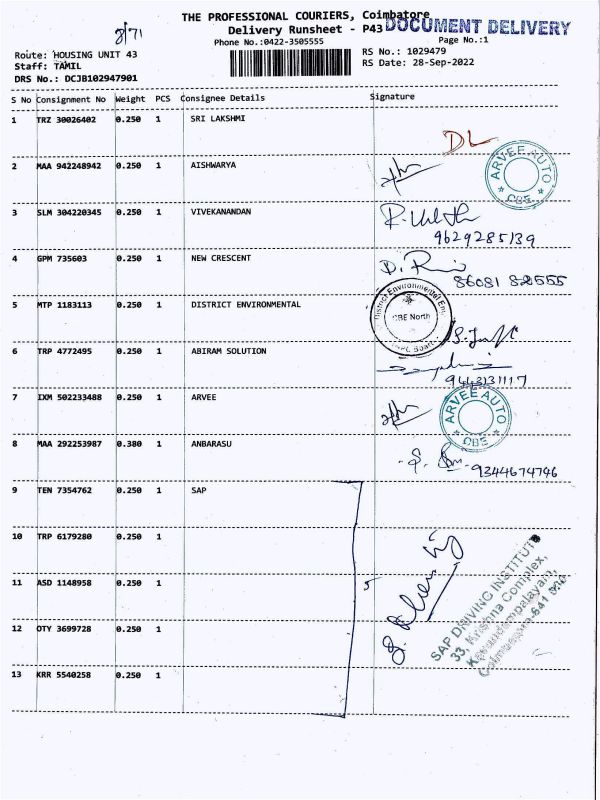 THE PROFESSIONAL COURIERS, Coimbatore
8/71
Delivery Runsheet - P43
DOCUMENT DELIVERY
Phone No.:0422-3505555
Page No.:1
Route: HOUSING UNIT 43
RS No.: 1029479
Staff: TAMIL
RS Date: 28-Sep-2022
DRS No.: DCJB102947901
S No Consignment No Weight PCS Consignee Details Signature
1 TRZ 30026402 0.250 1 SRI LAKSHMI
DL
2 MAA 942248942 0.250 1 AISHWARYA
ARVEE AUTO
CBE
3 SLM 304220345 0.250 1 VIVEKANANDAN
9629285139
4 GPM 735603 0.250 1 NEW CRESCENT
86081 82555
5 MTP 1183113 0.250 1 DISTRICT ENVIRONMENTAL
District Environmental
CBE North
Board
6 TRP 4772495 0.250 1 ABIRAM SOLUTION
9443131117
7 IXM 502233488 0.250 1 ARVEE
ARVEE AUTO
CBE
8 MAA 292253987 0.380 1 ANBARASU
9344674746
9 TEN 7354762 0.250 1 SAP
10 TRP 6179280 0.250 1
11 ASD 1148958 0.250 1
5
SAP DRIVING INSTITUTE
33, Krishna Complex,
Kavundampalayam,
12 OTY 3699728 0.250 1
13 KRR 5540258 0.250 1